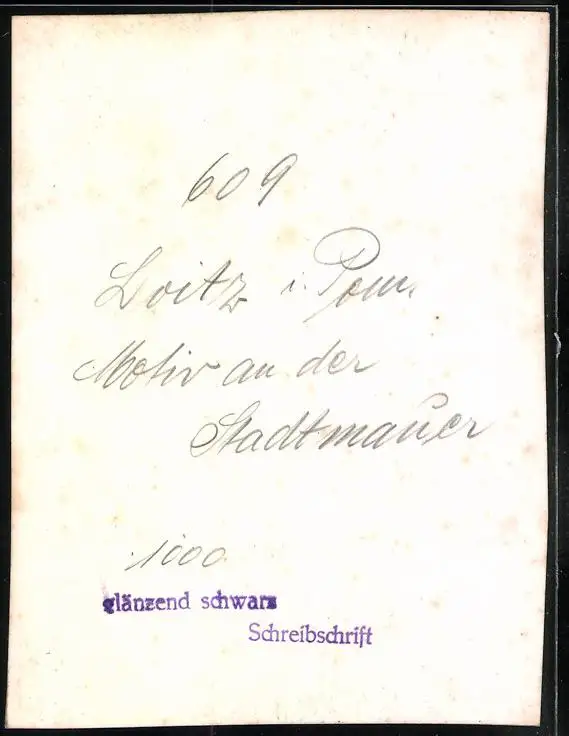 609
Loitz i. Pom.
Motiv an der
Stadtmauer
1000
glänzend schwarz
Schreibschrift